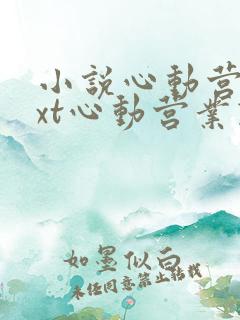 小說心動营
xt心動营業
如墨似白
未经同意禁止转载